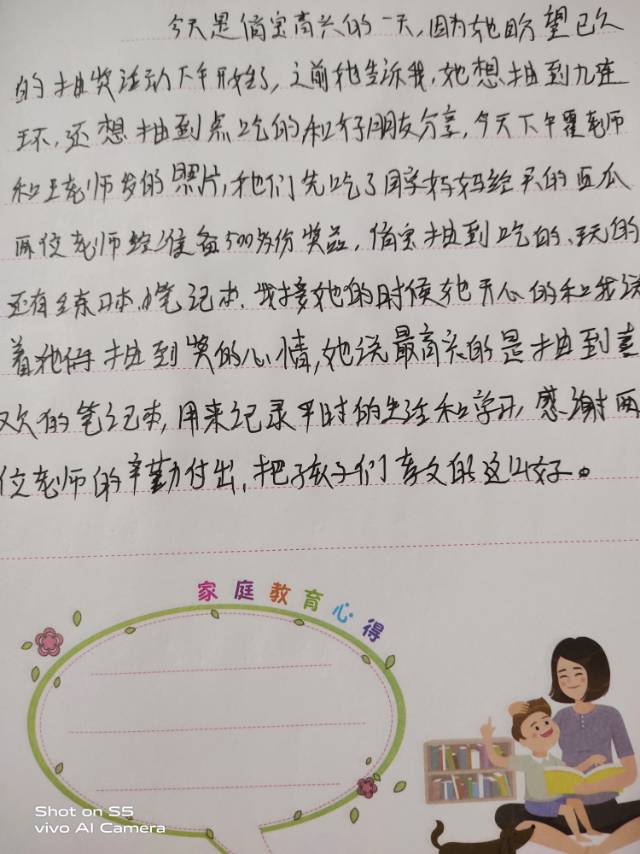 今天是俏宝高兴的一天,因为她盼望已久
的抽奖活动下午开始了,之前她告诉我,她想抽到九连
环,还想抽到点吃的和好朋友分享,今天下午瞿老师
和王老师发的照片,他们先吃了同学妈妈给买的西瓜
两位老师给准备500多份奖品,俏宝抽到吃的、玩的
还有练习本、笔记本.我接她的时候她开心的和我说
着她俩抽到奖的心情,她说最高兴的是抽到喜
欢的笔记本,用来记录平时的生活和学习,感谢两
位老师的辛勤付出,把孩子们教文的这么好。
家庭教育心得
Shot on S5
vivo AI Camera